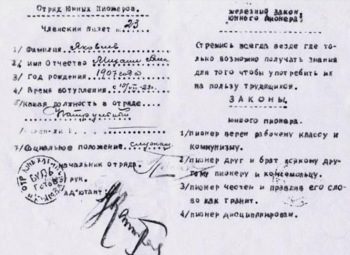 Отряд Юных Пионеров.
Членский билет № 23
1/ Фамилия Яковлев
2/ Имя Отчество
3/ Год рождения 1907 года
4/ Время вступления с
5/ Какая должность в отряде
7/Социальное положение
Начальник отряда
рук.
Ад'ютант:
БУДЬ
ГОТОВ
Железный закон,
юного пионера!
Стремись всегда везде где то-
лько возможно получать знания
для того чтобы употребить их
на пользу трудящихся.
ЗАКОНЫ.
юного пионера.
1/пионер верен рабочему классу и
коммунизму.
2/пионер друг и брат всякому дру-
гому пионеру и комсомольцу.
3/пионер честен и правдив его сло-
во как гранит.
4/пионер дисциплинирован.